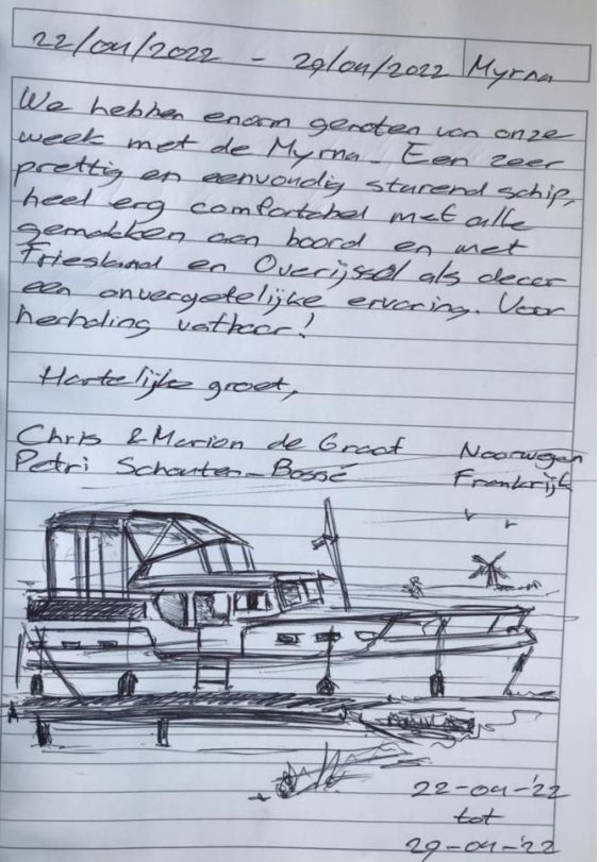 22/04/2022 - 29/04/2022 Myrna
We hebben enorm genoten van onze
week met de Myrna. Een zeer
prettig en eenvoudig sturend schip,
heel erg comfortabel met alle
gemakken aan boord en met
Friesland en Overijssel als decor
een onvergetelijke ervaring. Voor
herhaling vatbaar!
Hartelijke groet,
Chris & Marion de Graaf Noorwegen
Petri Schouten-Bossé Frankrijk
22-04-'22
tot
29-04-'22